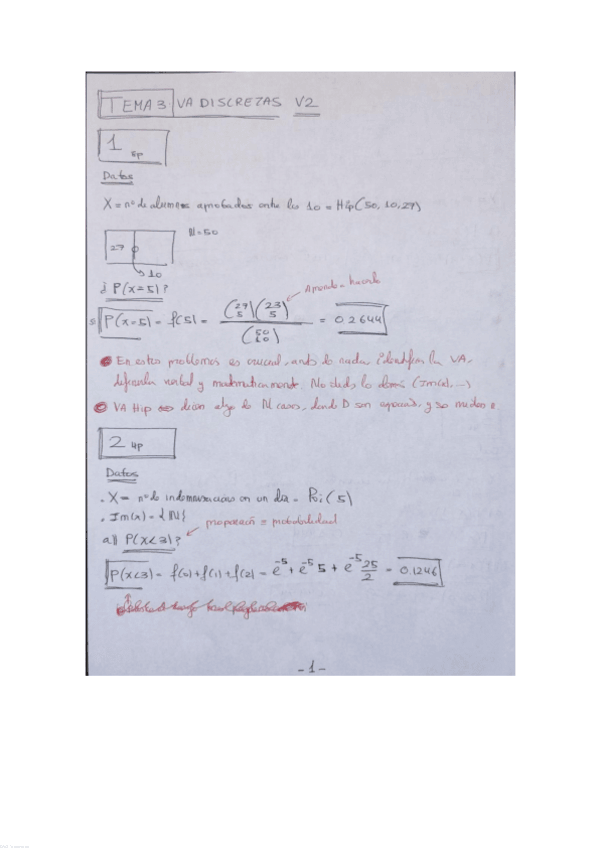 TEMA 3 VA DISCRETAS V2
1 5p
Datos
X = nº de alumnos aprobados entre los 10 = Hip(50, 10, 27)
N = 50
27
10
¿P(x=5)?
Aprendo a hacerlo
P(x=5) = f(5) = (27 5)(23 5) / (50 10) = 0.2644
En estos problemas es crucial, antes de nada identificar la VA,
definirla verbal y matemáticamente. No lo demás (Im(x), ...)
VA Hip dicen algo de N casos, donde D son y so
2 4p
Datos
. X = nº de indemnizaciones en un día = Poi(5)
. Im(x) = {N}
proporción = probabilidad
a) P(x<3)?
P(x<3) = f(0) + f(1) + f(2) = e^-5 + e^-5 5 + e^-5 25/2 = 0.1246
- 1 -